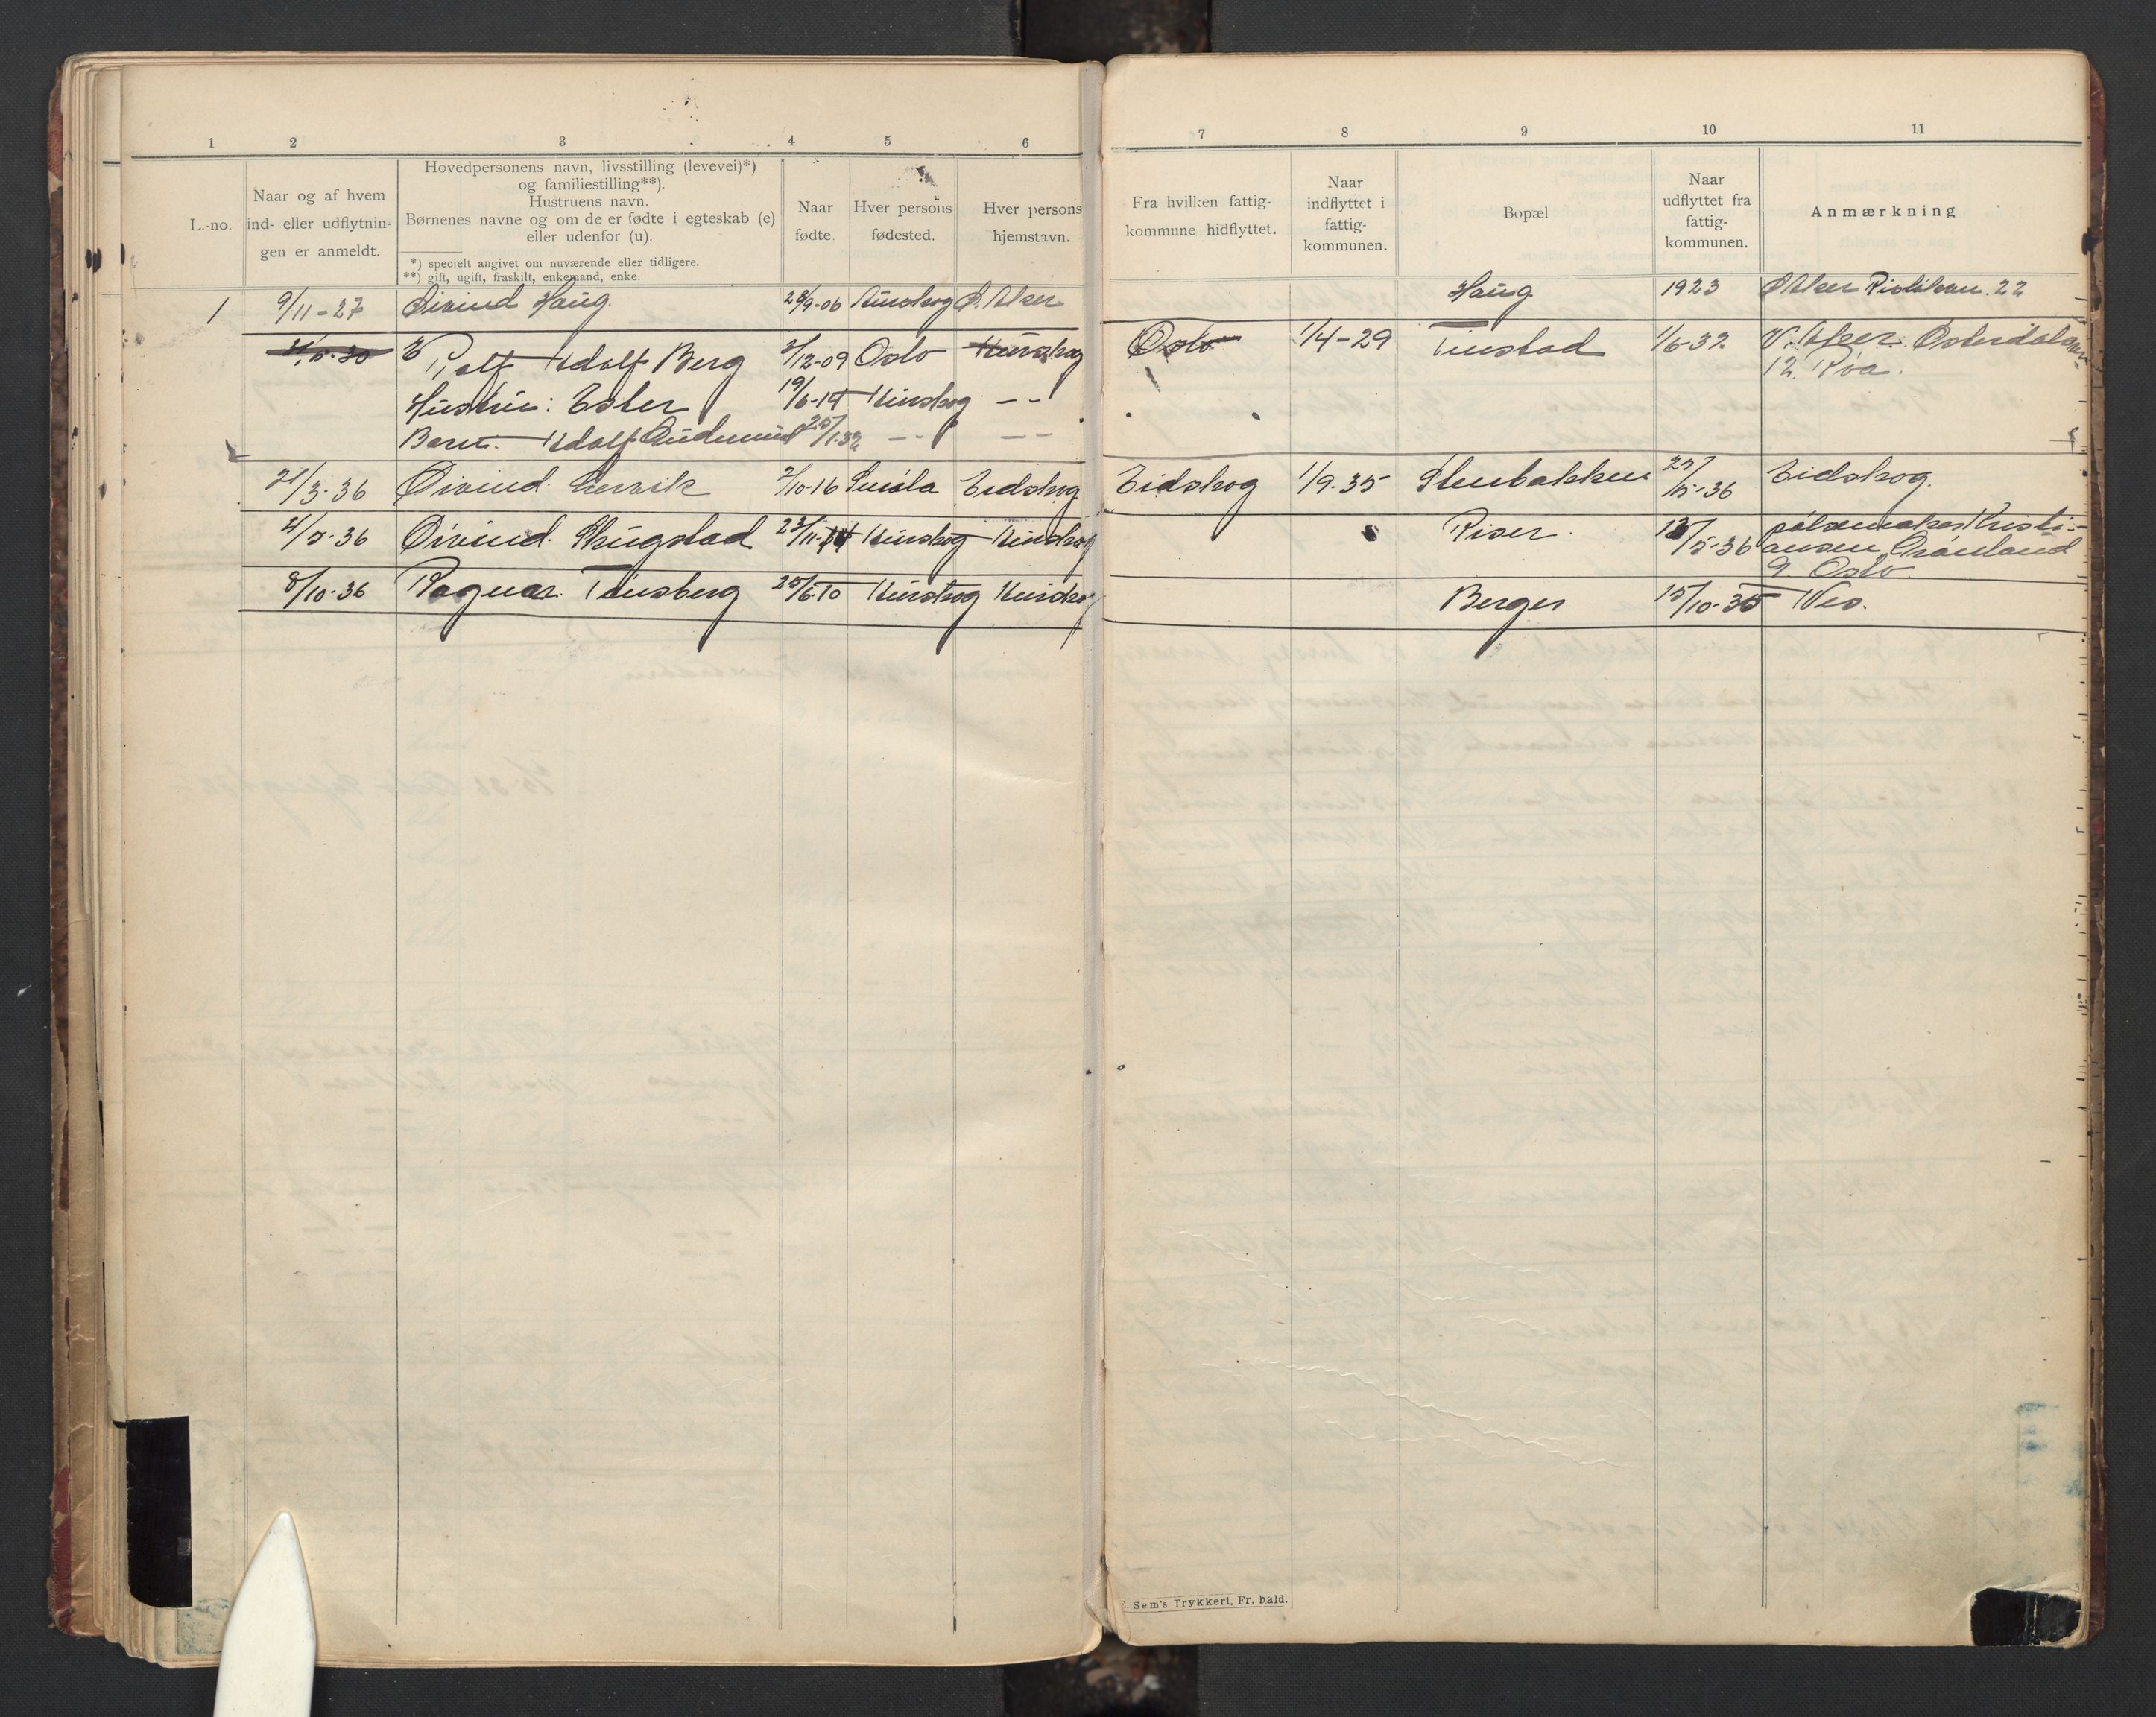 1 2 3 4 5 6
L.-no.
Naar og af hvem
ind- eller udflytnin-
gen er anmeldt.
Hovedpersonens navn, livsstilling (levevei)*)
og familiestilling**).
Hustruens navn.
Børnenes navne og om de er fødte i egteskab (e)
eller udenfor (u).
*) specielt angivet om nuværende eller tidligere.
**) gift, ugift, fraskilt, enkemand, enke.
Naar
fødte.
Hver persons
fødested.
Hver persons
hjemstavn.
1 9/11-27 Øivind Haug. 28/9-06 Aurskog Ø. Aker
Rolf Adolf Berg 2/12-09 Oslo Aurskog
Hustru: Ester 19/6-14 Aurskog - -
Barn. Adolf 25/1.32 - - - -
21/3-36 Øivind 2/10-16 Eidskog
4/5-36 Øivind Skugstad 23/11- Aurskog Aurskog
8/10-36 Ragnar Tønsberg 20/6-10 Aurskog Aurskog
7 8 9 10 11
Fra hvilken fattig-
kommune hidflyttet.
Naar
indflyttet i
fattig-
kommunen.
Bopæl
Naar
udflyttet fra
fattig-
kommunen.
Anmærkning
Haug. 1923 Ø Aker 22
Oslo 1/4-29 Tustad 1/6-32 V. Aker. Østerdalsvn
12. Røa.
Eidskog 1/9.35 Stenbakken 25/5-36 Eidskog.
Riser. 5-36 pølsemaker Kristi-
ansen, Grønland
9. Oslo.
Berger 15/10-35 Nes.
E. Sem's Trykkeri, Fr. hald.